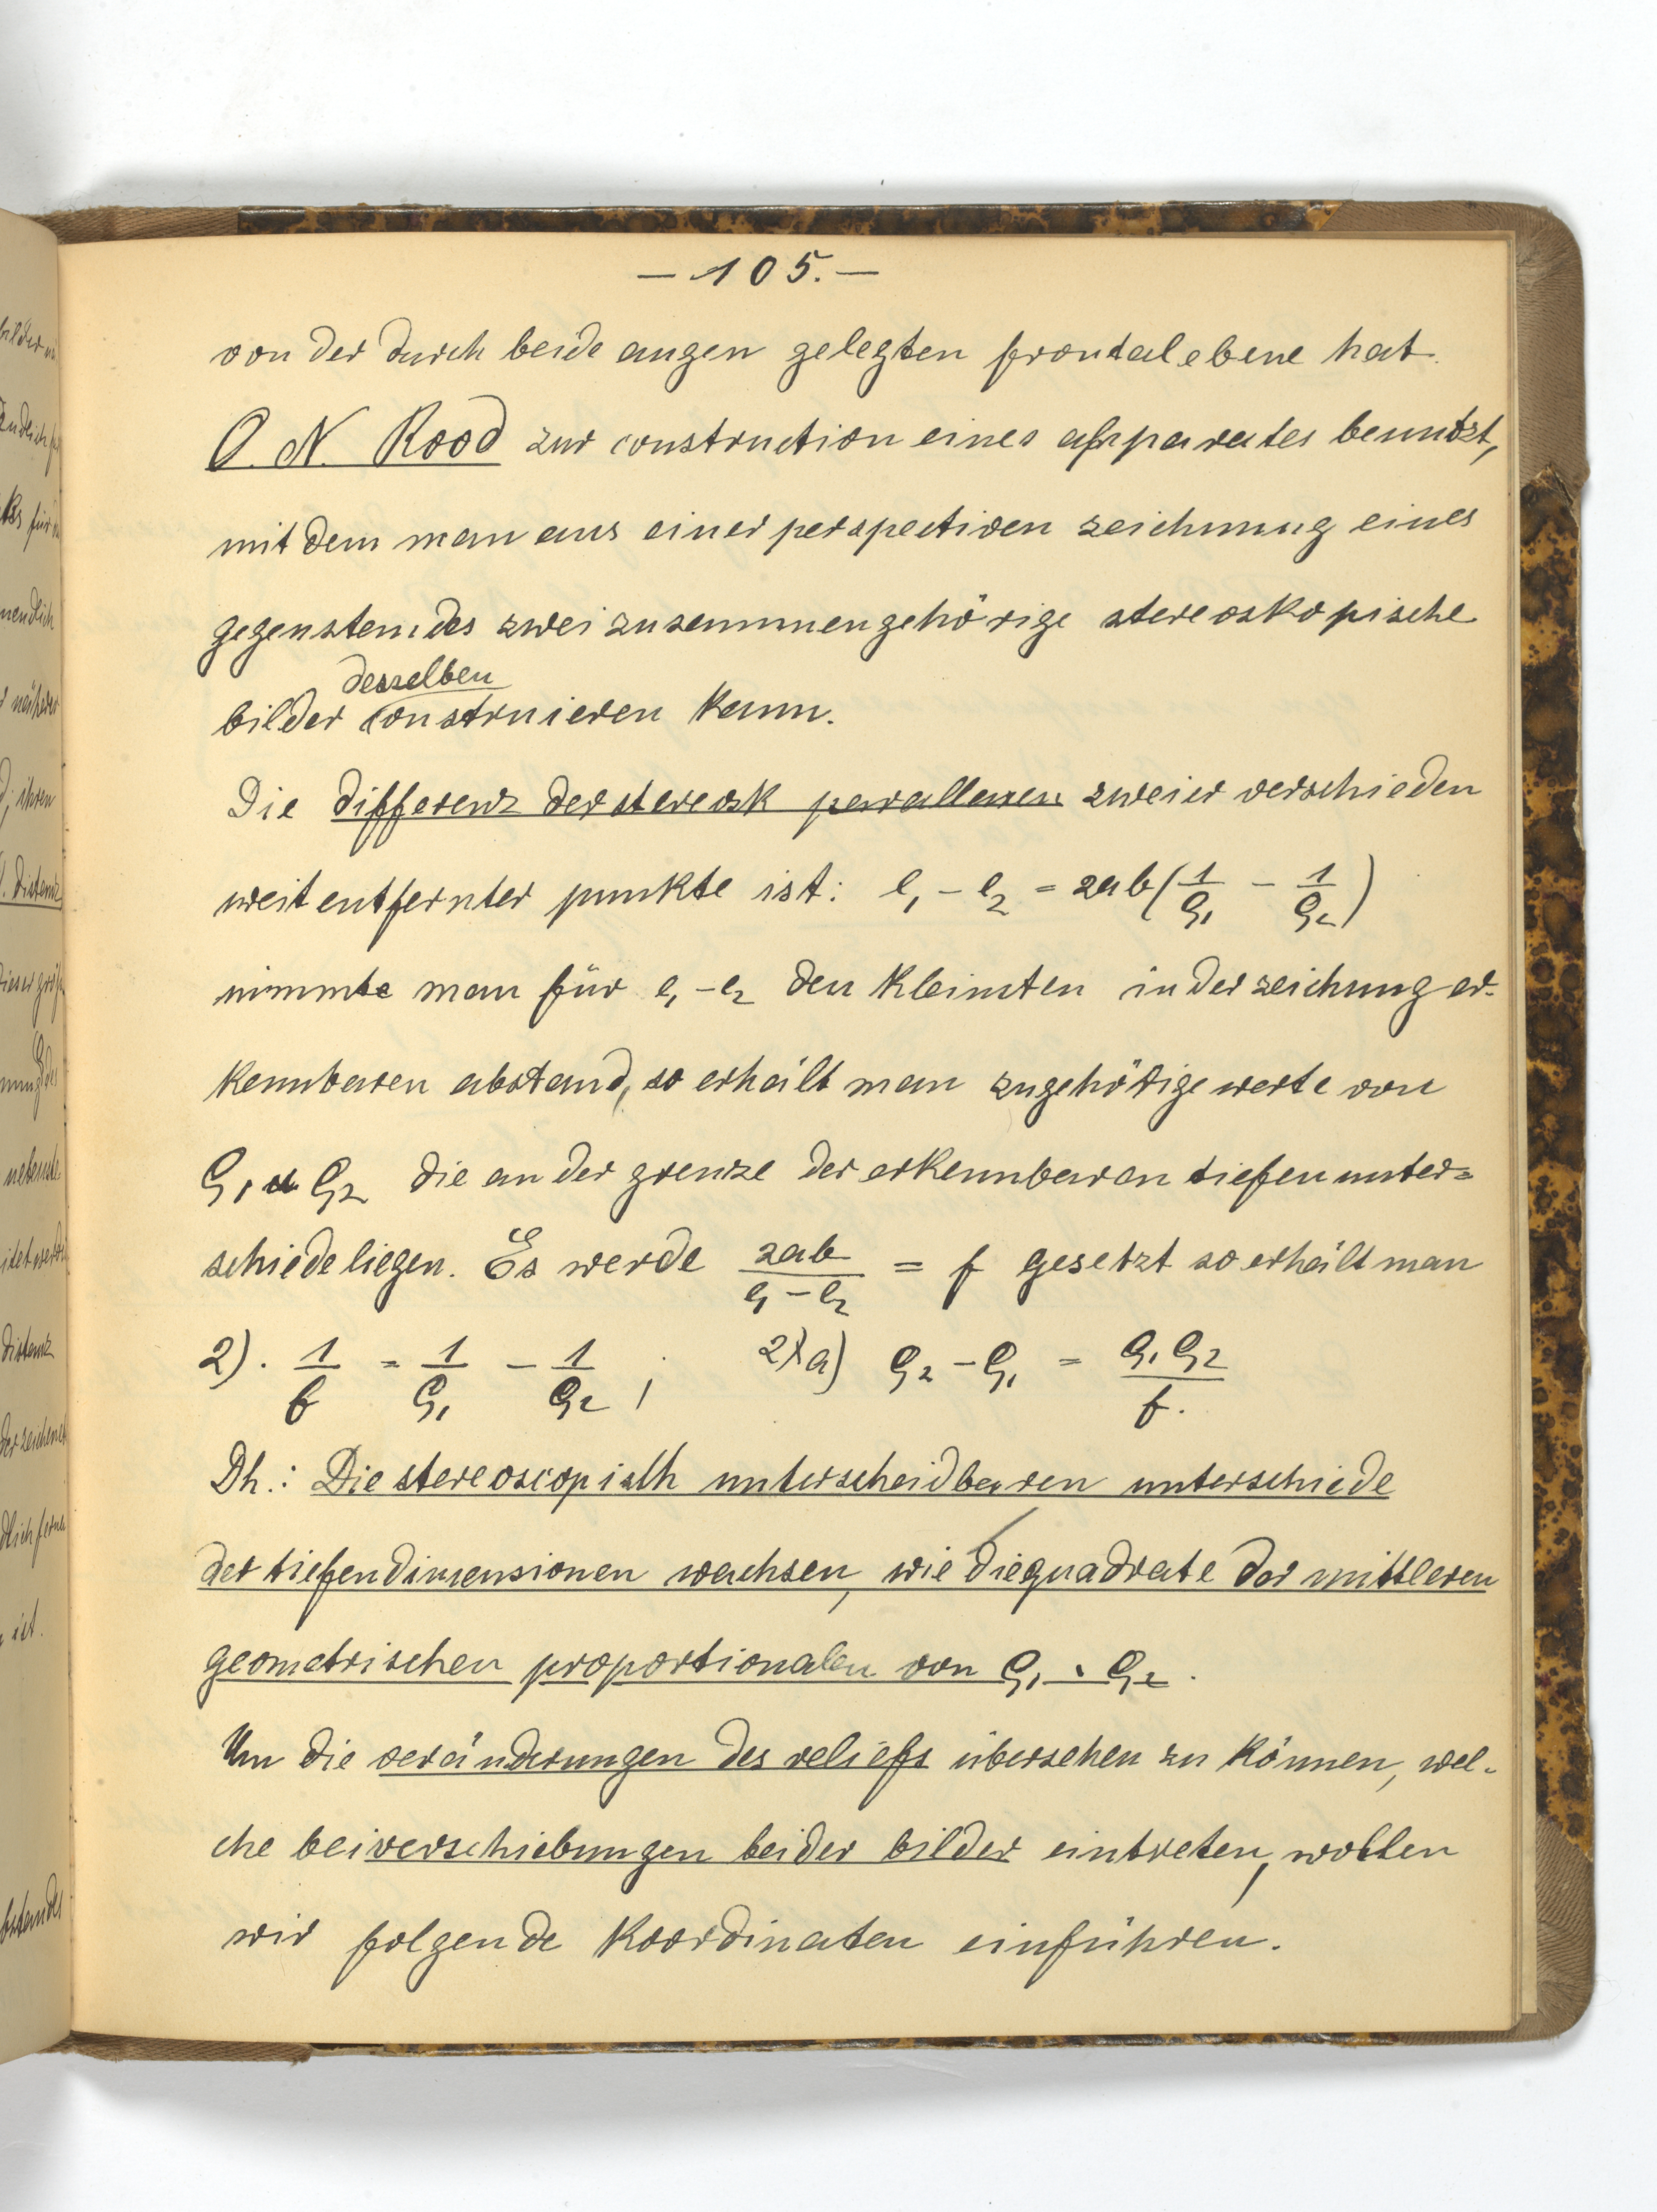 – 105. –
von der durch beide augen gelegten frontalebene hat.
O. N. Rood zur construction eines apparates benutzt,
mit dem man aus einer perspectiven zeichnung eines
gegenstandes zwei zusammengehörige stereoskopische
desselben
bilder construieren kann.
Die differenz der stereosk parallaxen zweier verschieden
weit entfernter punkte ist: e₁ – e₂ = 2ab(1/ρ₁ – 1/ρ₂)
nimmte man für e₁ – e₂ den kleinsten in der zeichung er-
kennbaren abstand, so erhält man zugehörige werte von
ρ₁ u ρ₂ die an der grenze der erkennbaren tiefenunter=
schiede liegen. Es werde 2ab/(e₁ – e₂) = f gesetzt so erhält man
2). 1/f = 1/ρ₁ – 1/ρ₂ ; 2)a) ρ₂ – ρ₁ = ρ₁ρ₂/f.
Dh.: Die stereoscopisch unterscheidbaren unterschiede
der tiefendimensionen wachsen, wie die quadrate der mittleren
geometrischen proportionalen von ρ₁ . ρ₂.
Um die veränderungen des reliefs übersehen zu können, wel-
che bei verschiebungen beider bilder eintreten, wollen
wir folgende koordinaten einführen.